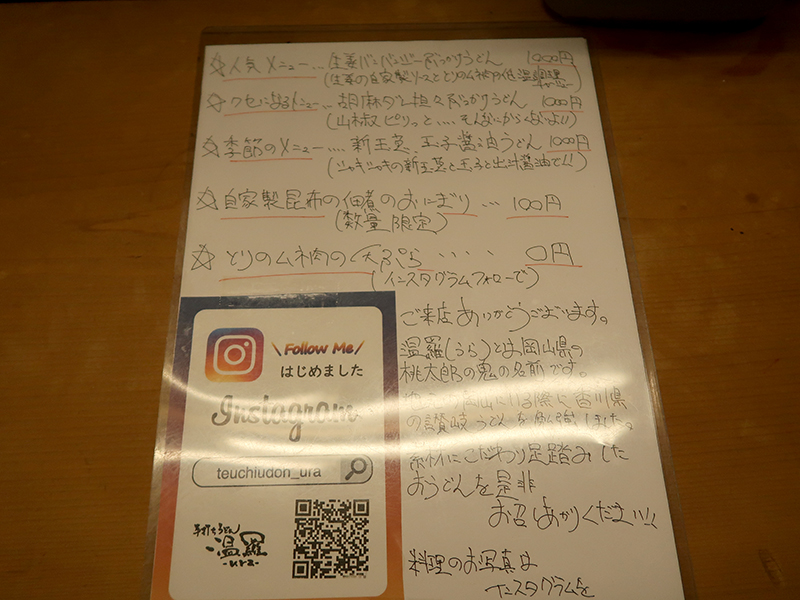 ☆人気メニュー… 生姜バンバンジーぶっかけうどん 1000円
(生姜の自家製ソースととりのムネ肉の低温調理
☆クセになるメニュー… 胡麻ダレ担々ぶっかけうどん 1000円
(山椒ピリッと…. そんなにからくないよ!!)
☆季節のメニュー…. 新玉葱、玉子醤油うどん 1000円
(シャキシャキの新玉葱と玉子と出汁醤油で!!)
☆自家製昆布の佃煮のおにぎり … 100円
(数量限定)
☆とりのムネ肉の天ぷら ‥‥ 0円
(インスタグラムフォローで)
\Follow Me/
はじめました
Instagram
teuchiudon_ura
手打ちうどん
温羅
-ura-
ご来店ありがとうございます。
温羅(うら)とは岡山県の
桃太郎の鬼の名前です。
岡山にいる際に香川県
の讃岐うどんを勉強しました。
素材にこだわり足踏みした
おうどんを是非
お召しあがりください!!
料理のお写真は
インスタグラムを